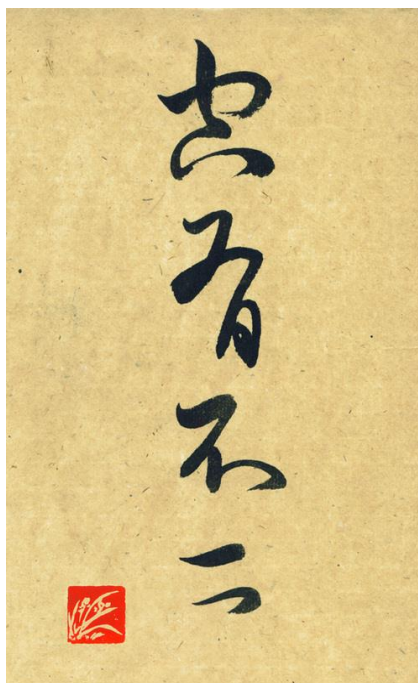 空有不二